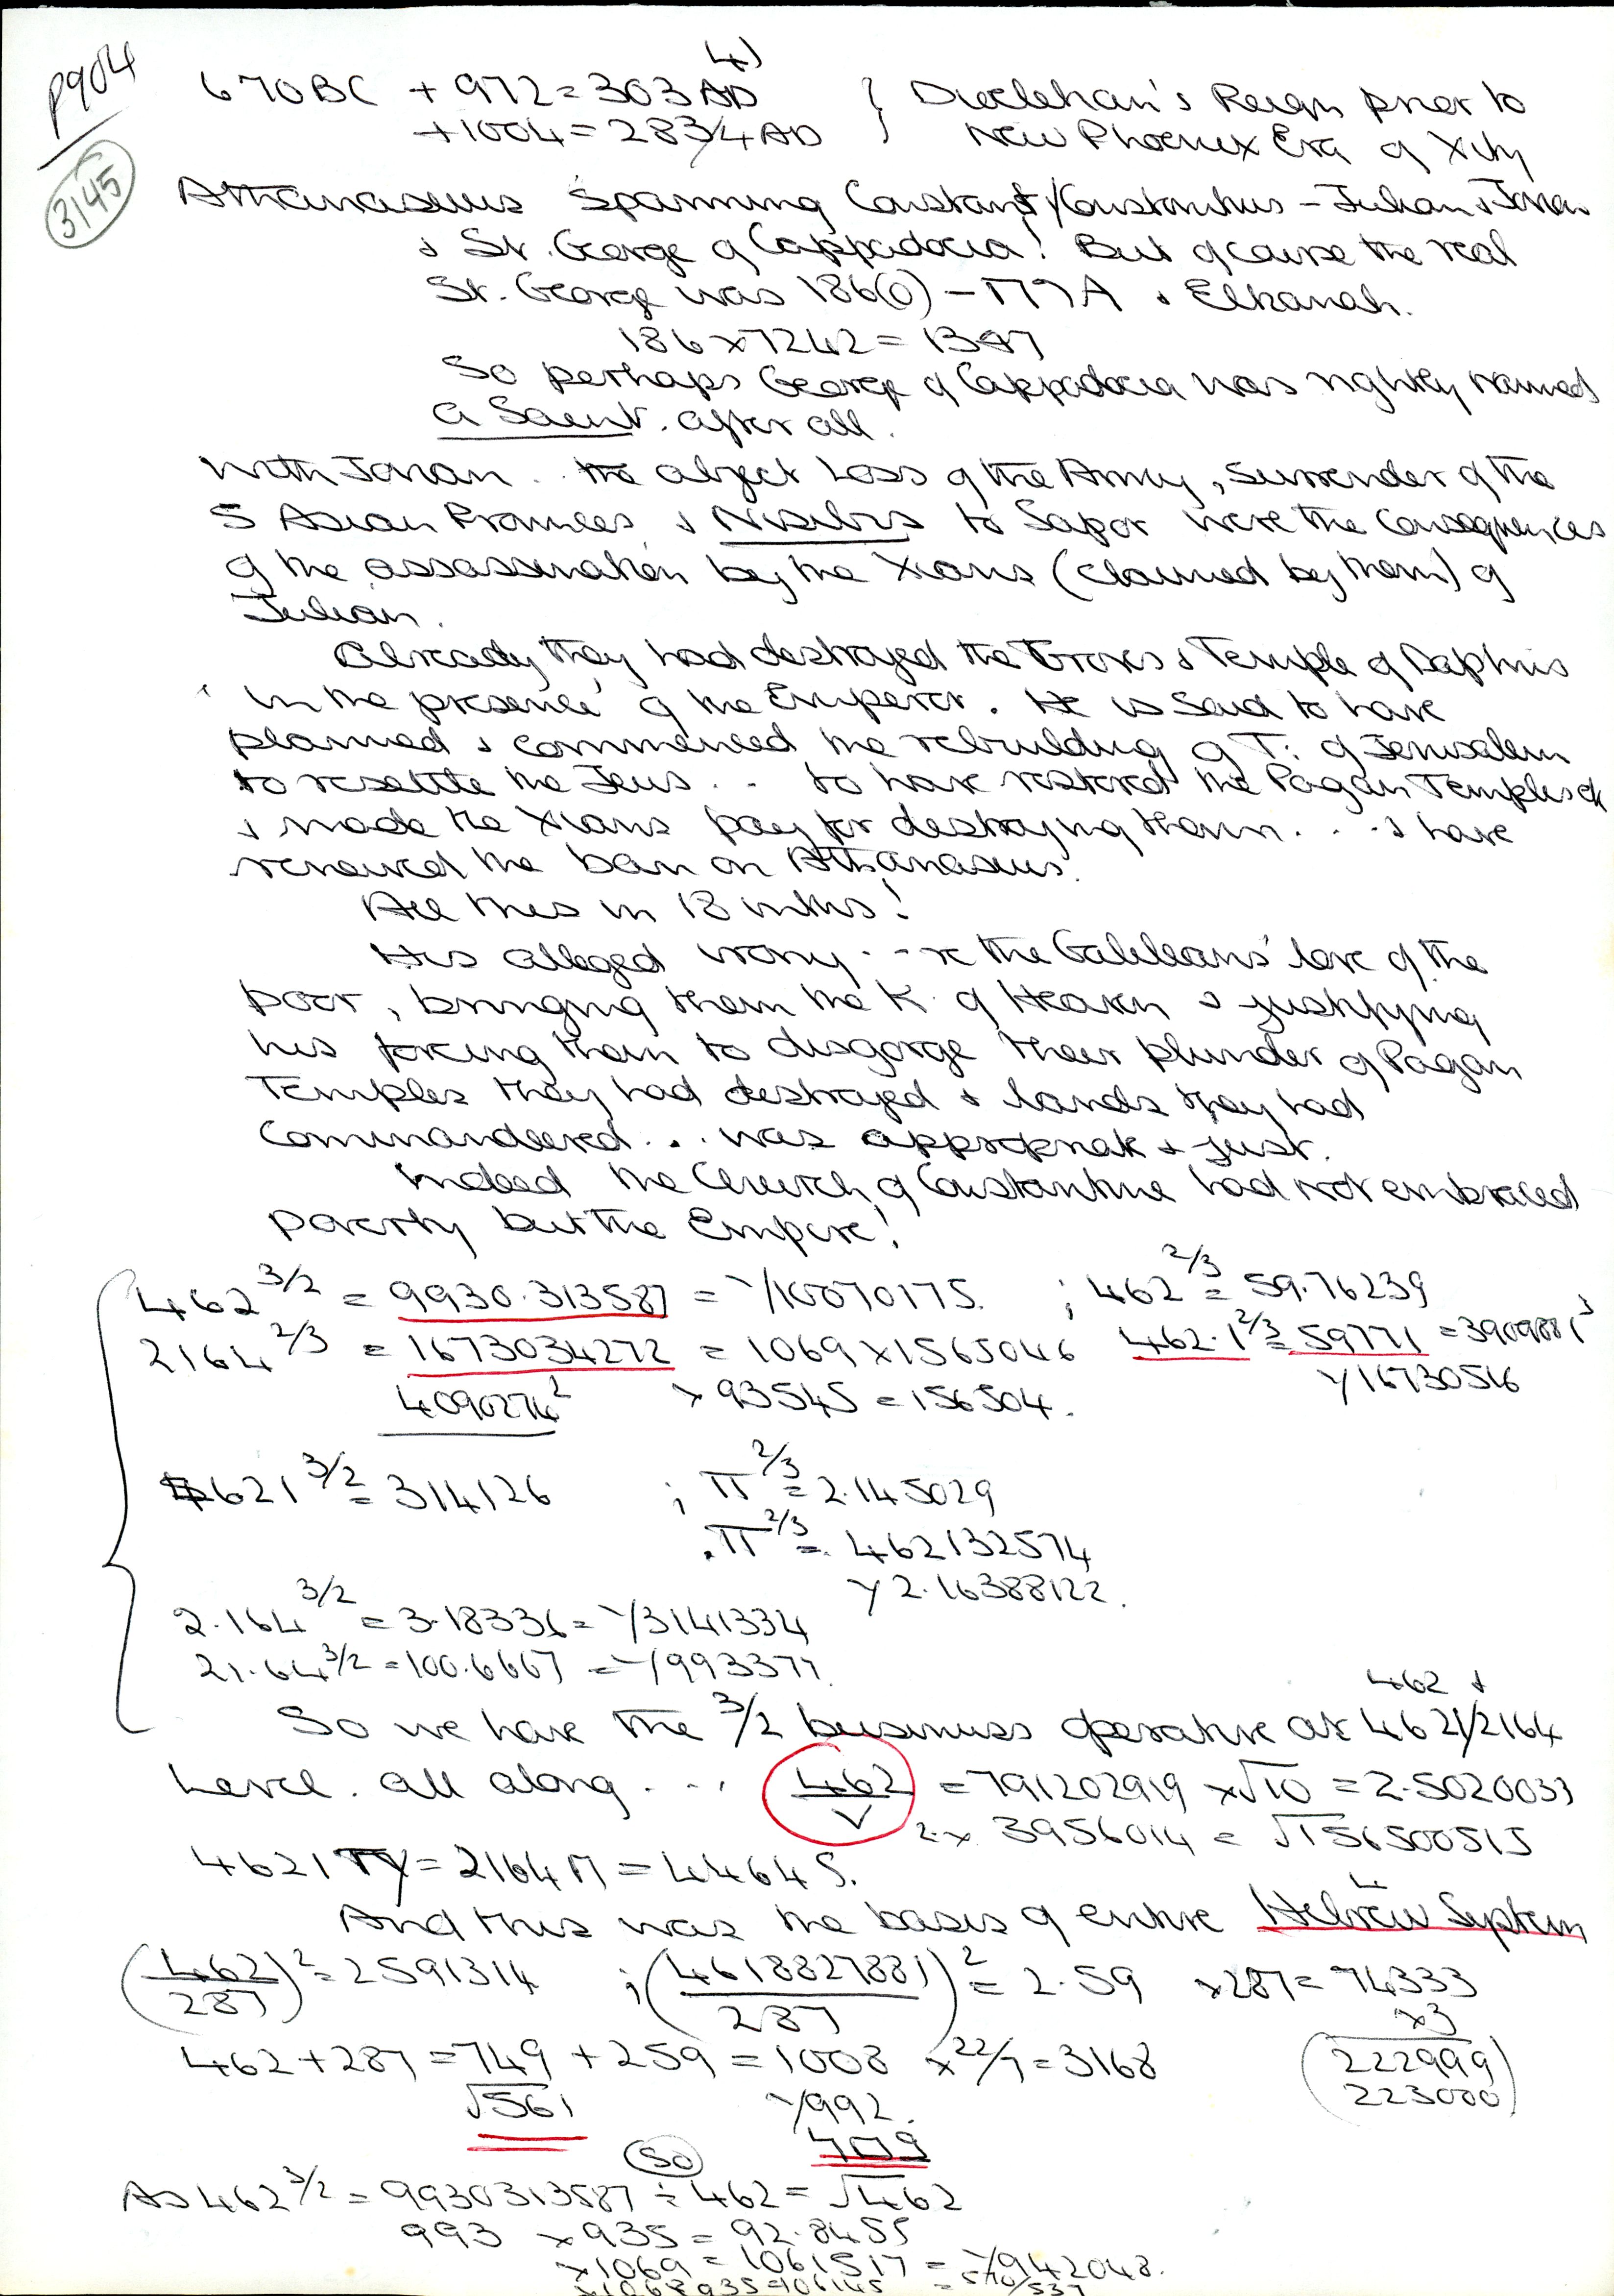 P904
3145
4)
670BC + 972 = 303 AD } Diocletian's Reign prior to
+1004 = 283/4 AD } New Phoenix Era of Xity
Athanasius spanning Constant/Constantius – Julian & Jovian
& St. George of Cappadocia! But of course the real
St. George was 186(0) – & Elkanah.
186 x 7242 = 1347
So perhaps George of Cappadocia was rightly named
a Saint. after all.
With Jovian .. the abject Loss of the Army, surrender of the
5 Asian Provinces & Nisibis to Sapor were the consequences
of the assassination by the Xians (claimed by them) of
Julian.
Already they had destroyed the Groves & Temple of Daphnis
'in the presence' of the Emperor. He is said to have
planned & commenced the rebuilding of T: of Jerusalem
to resettle the Jews . . to have restored the Pagan Temples etc
& made the Xians pay for destroying them . . . & have
renewed the ban on Athanasius.
All this in 18 mths!
His alleged irony . . – re the Galileans' love of the
poor, bringing them the K. of Heaven & justifying
his forcing them to disgorge their plunder of Pagan
Temples they had destroyed & lands they had
commandeered . . . was appropriate & just.
Indeed the Church of Constantine had not embraced
poverty but the Empire!
462^3/2 = 9930.313587 = Y10070175. ; 462^2/3 = 59.76239
2164^2/3 = 1673034272 = 1069 x 1565046 462.1^2/3 = 59771 = 3909881^3
4090274^2 x 93545 = 156504. Y16730516
4621^3/2 = 314126 ; π^2/3 = 2.145029
.π^2/3 = .462132574
Y2.16388122.
2.164^3/2 = 3.18336 = Y3141334
21.64^3/2 = 100.6667 = Y993377.
So we have the 3/2 business operative at 462 & 4621/2164
Level. all along . . . 462/V = 791202919 x √10 = 2.5020033
2. x 3956014 = √156500515
4621 πy = 2164 π = 44645.
And this was the basis of entire Hebrew System
(462/287)^2 = 2591314 ; (461882788)/287)^2 = 2.59 x 287 = 74333
x3
462 + 287 = 749 + 259 = 1008 x 22/7 = 3168 (222999
√561 Y992. 223000)
409
So
As 462^3/2 = 9930313587 ÷ 462 = √462
993 x 935 = 92.8455
x 1069 = 1061517 = Y942048.
x 1068935 = 106145 =